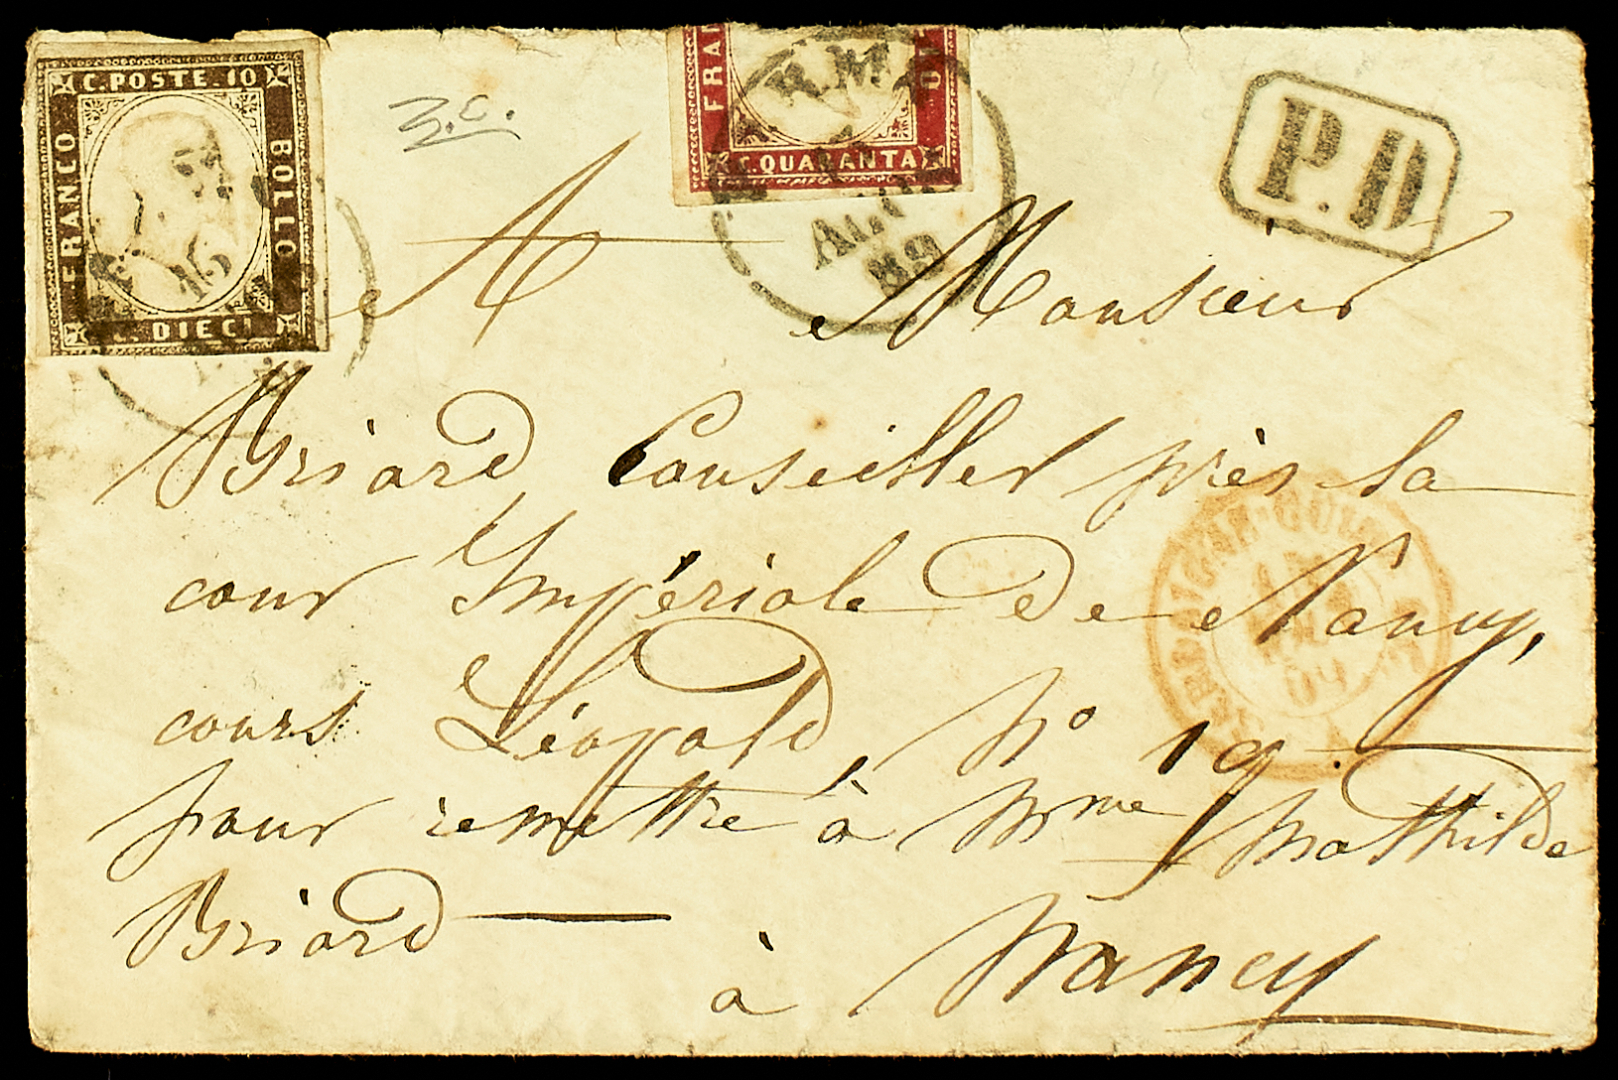 C. POSTE. 10
FRANCO
BOLLO
C. DIECI
16
FRA
C. QUARANTA
59
P.D
A Monsieur
Briard, Conseiller près la
cour Impériale de Nancy,
cours Léopold, No 19.
pour remettre à Mme Mathilde
Briard
à Nancy